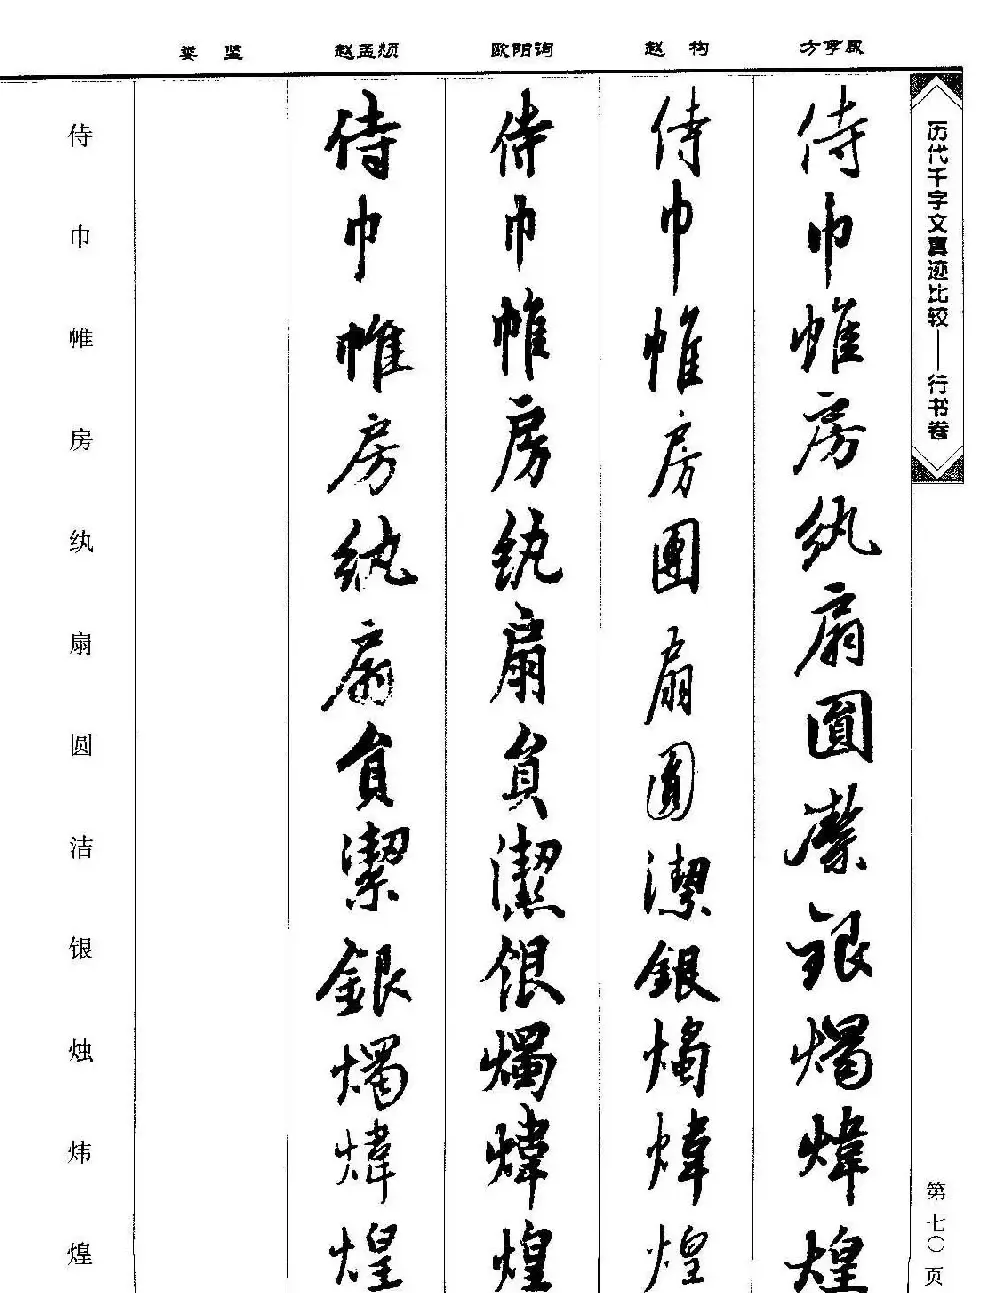 历代千字文真迹比较——行书卷
第七〇页
方亨咸
侍巾帷房紈扇圓潔銀燭煒煌
赵构
侍巾帷房團扇圓潔銀燭煒煌
欧阳询
侍巾帷房紈扇員潔銀燭煒煌
赵孟頫
侍巾帷房紈扇員潔銀燭煒煌
娄坚
侍巾帷房纨扇圆洁银烛炜煌